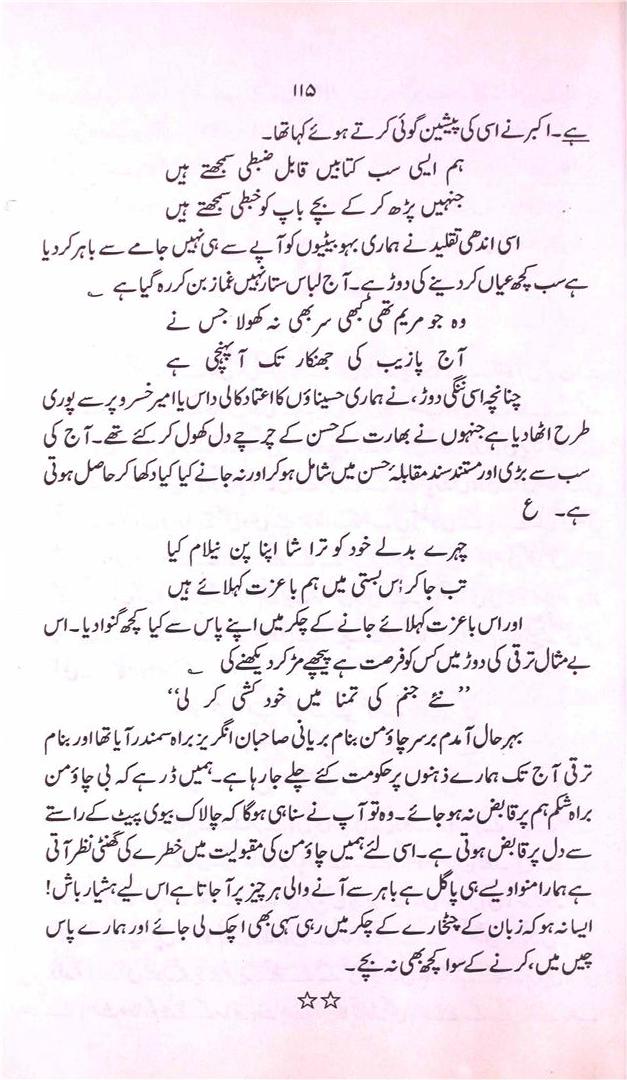 ۱۱۵
ہے۔ اکبر نے اسی کی پیشین گوئی کرتے ہوئے کہا تھا۔
ہم ایسی سب کتابیں قابل ضبطی سمجھتے ہیں
جنہیں پڑھ کر کے بچے باپ کو خبطی سمجھتے ہیں
اسی اندھی تقلید نے ہماری بہو بیٹیوں کو آپے سے ہی نہیں جامے سے باہر کر دیا
ہے سب کچھ عیاں کر دینے کی دوڑ ہے۔ آج لباس ستار نہیں غماز بن کر رہ گیا ہے ؎
وہ جو مریم تھی کبھی سر بھی نہ کھولا جس نے
آج پازیب کی جھنکار تک آ پہنچی ہے
چنانچہ اسی ننگی دوڑ، نے ہماری حسیناؤں کا اعتماد کالی داس یا امیر خسرو پر سے پوری
طرح اٹھا دیا ہے جنہوں نے بھارت کے حسن کے چرچے دل کھول کر کئے تھے۔ آج کی
سب سے بڑی اور مستند سند مقابلۂ حسن میں شامل ہو کر اور نہ جانے کیا کیا دکھا کر حاصل ہوتی
ہے۔ ع
چہرے بدلے خود کو تراشا اپنا پن نیلام کیا
تب جا کر اُس بستی میں ہم باعزت کہلائے ہیں
اور اس باعزت کہلائے جانے کے چکر میں اپنے پاس سے کیا کچھ گنوا دیا۔ اس
بے مثال ترقی کی دوڑ میں کس کو فرصت ہے پیچھے مڑ کر دیکھنے کی ؎
’’نئے جنم کی تمنا میں خود کشی کر لی‘‘
بہر حال آمدم برسر چاؤمن بنام بریانی صاحبان انگریز براہ سمندر آیا تھا اور بنام
ترقی آج تک ہمارے ذہنوں پر حکومت کئے چلے جا رہا ہے۔ ہمیں ڈر ہے کہ بی چاؤمن
براہ شکم ہم پر قابض نہ ہو جائے۔ وہ تو آپ نے سنا ہی ہوگا کہ چالاک بیوی پیٹ کے راستے
سے دل پر قابض ہوتی ہے۔ اسی لئے ہمیں چاؤمن کی مقبولیت میں خطرے کی گھنٹی نظر آتی
ہے ہمارا منوا ویسے ہی پاگل ہے باہر سے آنے والی ہر چیز پر آ جاتا ہے اس لیے ہشیار باش!
ایسا نہ ہو کہ زبان کے چٹخارے کے چکر میں رہی سہی بھی اچک لی جائے اور ہمارے پاس
چیں میں، کرنے کے سوا کچھ بھی نہ بچے۔
☆☆